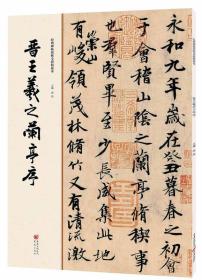 永和九年歲在癸丑暮春之初會
于會稽山陰之蘭亭脩稧事
也羣賢畢至少長咸集此地
有崇山峻領茂林脩竹又有清流激
晉王羲之蘭亭序